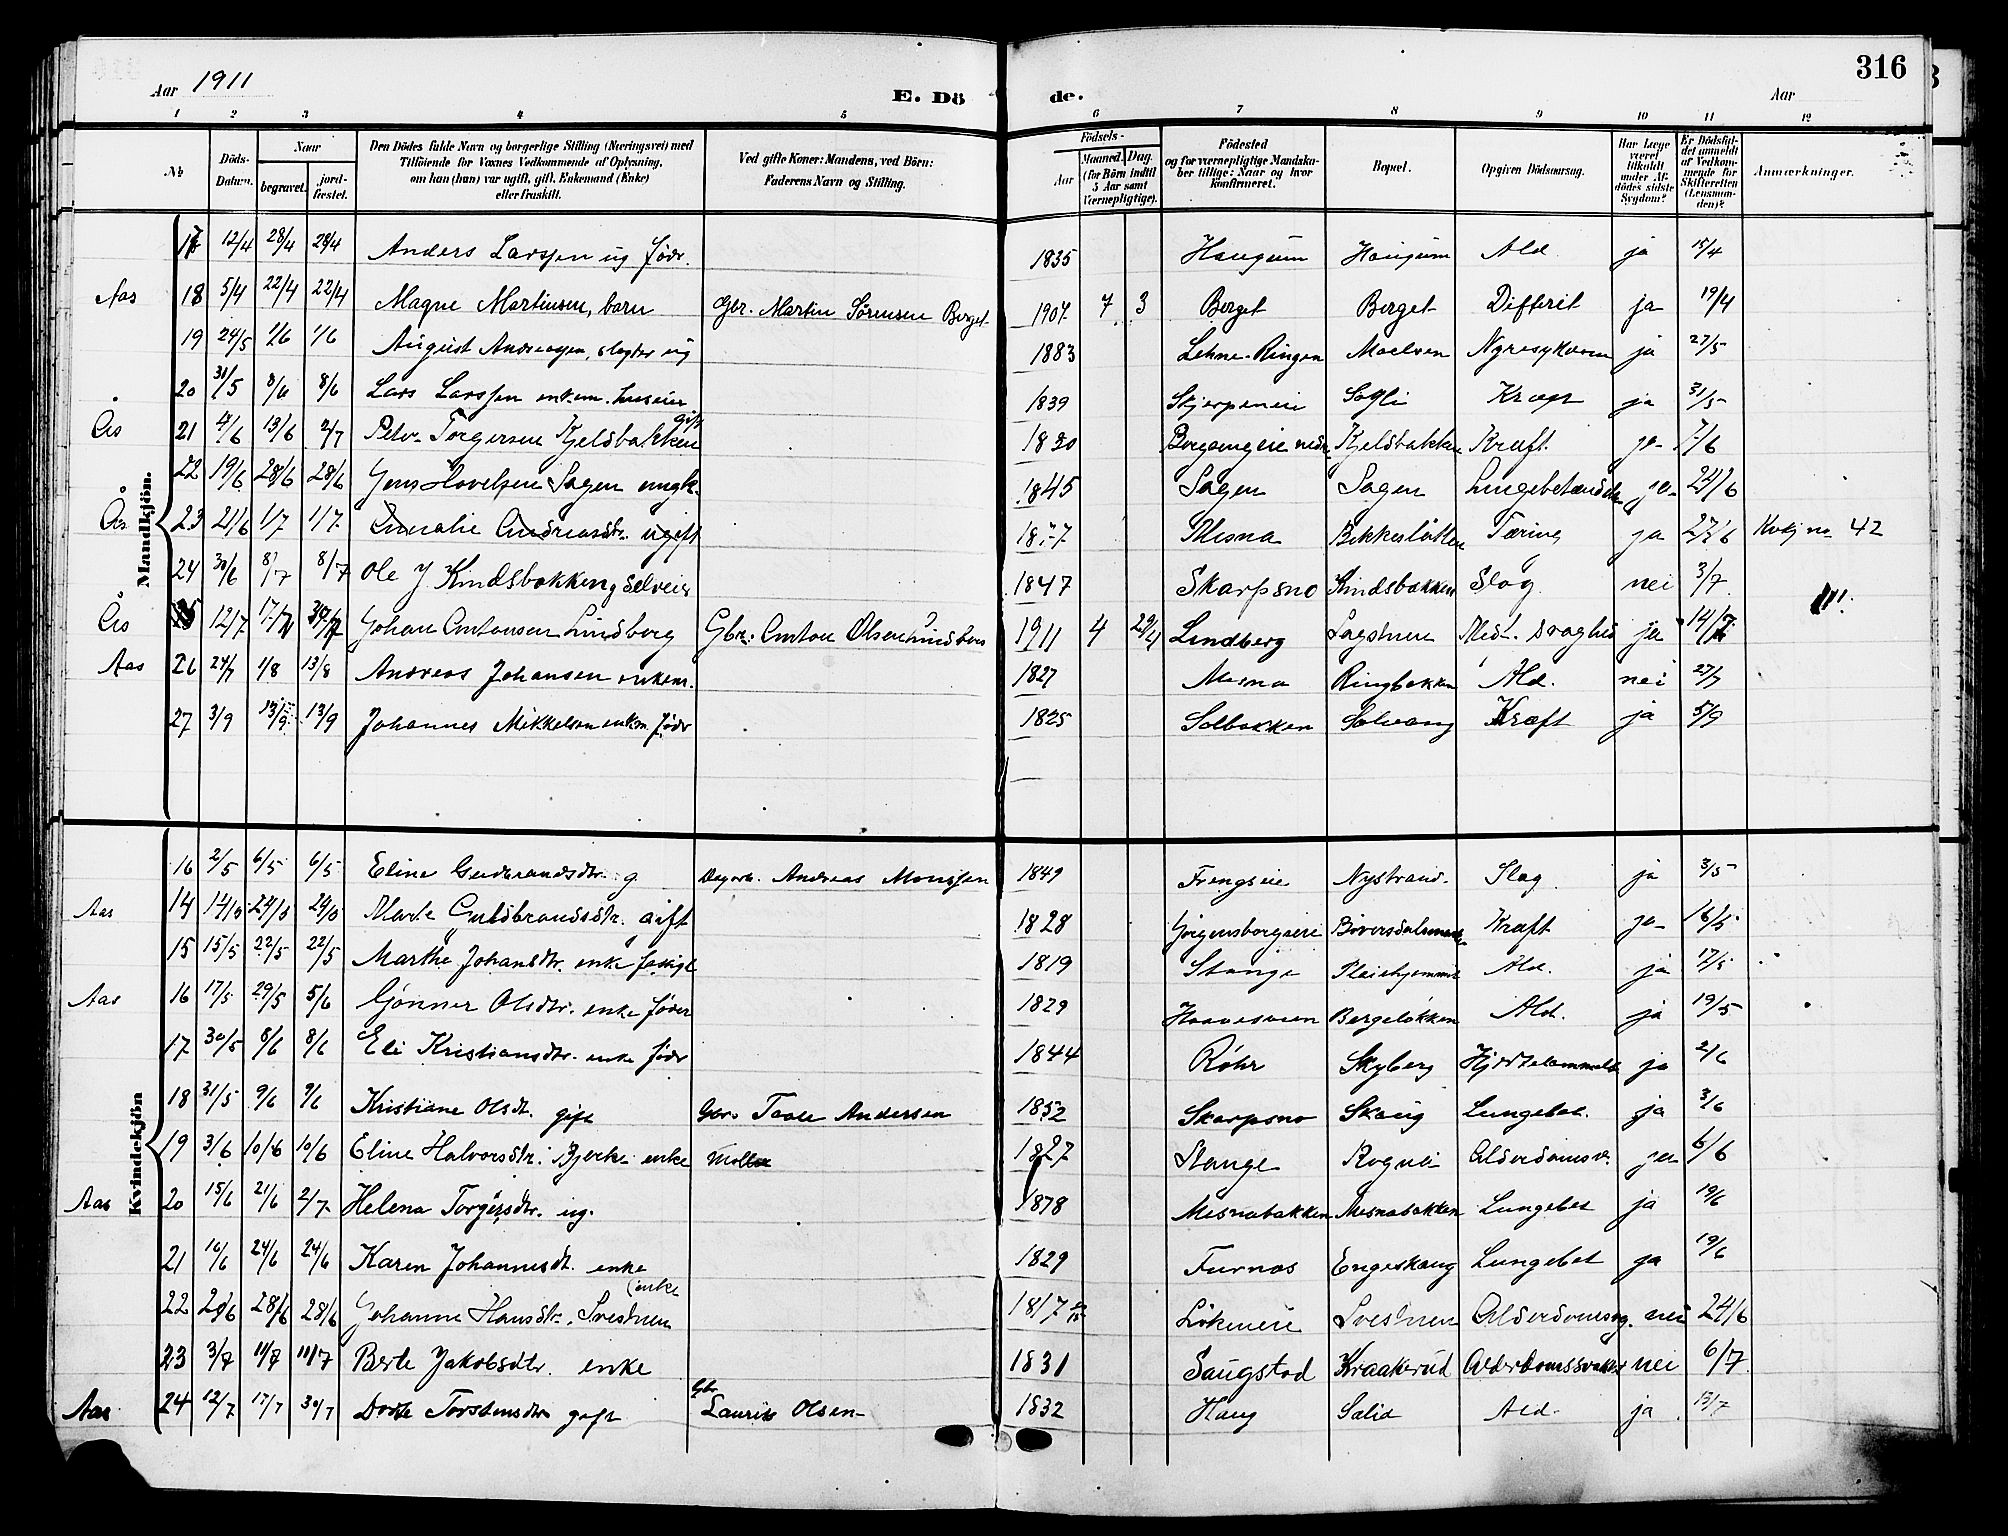 316
Aar 1911 E. Dö de. Aar
1 2 3 4 5 6 7 8 9 10 11 12
№ Döds-Datum. Naar begravet. jordfæstet. Den Dödes fulde Navn og borgerlige Stilling (Næringsvei) med Tilföiende for Voxnes Vedkommende af Oplysning, om han (hun) var ugift, gift, Enkemand (Enke) eller fraskilt. Ved gifte Koner: Mandens, ved Börn: Faderens Navn og Stilling. Födsels- Aar Maaned. Dag. (for Börn indtil 5 Aar samt Værnepligtige). Födested og for værnepligtige Mandskaber tillige: Naar og hvor konfirmeret. Bopæl. Opgiven Dödsaarsag. Har Læge været tilkaldt under Afdödes sidste Sygdom? Er Dödsfaldet anmeldt af Vedkommende for Skifteretten (Lensmanden)? Anmærkninger.
Mandkjön.
17 12/4 28/4 28/4 Anders Larssen ug födr. 1835 Haugum Haugum Ald. ja 15/4
Aas 18 5/4 22/4 22/4 Magne Martinsen, barn Gbr. Martin Sörensen Berget 1907 7 3 Berget Berget Difterit ja 19/4
19 24/5 1/6 1/6 August Andreasen, slagter ug 1883 Lehne-Ringen Moelven Nyresykdom ja 27/5
20 31/5 8/6 8/6 Lars Larssen enkem. huseier 1839 Skjerpeneie Sagli Kræft ja 31/5
Ås 21 4/6 13/6 2/7 Peter Torgersen Kjeldsbakken gift 1830 Kjeldsbakken Kræft. ja 7/6
22 19/6 28/6 28/6 Jens Hovelsen Sagen ungk. 1845 Sagen Sagen Lungebetændelse ja 24/6
Ås 23 21/6 1/7 1/7 Amalie Andreasdtr. ugift 1877 Mesna Bekkeslåtten Tæring ja 27/6 Kvkj no 42
24 30/6 8/7 8/7 Ole J. Kindsbakken g selveier 1847 Skarpsno Kindsbakken Slag. nei 3/7
Ås 25 12/7 17/7 30/7 Johan Antonsen Lindberg Gbr: Anton Olsen Lindberg 1911 4 29/4 Lindberg Lagstuen Med. svaghed ja 14/7
Aas 26 24/7 1/8 13/8 Andreas Johansen enkem. 1827 Mesna Ringbakken Ald. nei 27/7
27 3/9 13/9 13/9 Johannes Mikkelsen enkem födr 1825 Solbakken Solvang Kræft ja 5/9
Kvindekjön
16 2/5 6/5 6/5 Eline Gudbrandsdtr. g Dagarb. Andreas Monssen 1849 Frengseie Nystrand. Slag. ja 3/5
Aas 14 14/5 24/5 24/5 Marte Guldbrandsdtr. gift 1828 Jörgensborgseie Kræft ja 16/5
15 15/5 22/5 22/5 Marthe Johansdtr. enke fattigl 1819 Stange Pleiehjemmet Ald. ja 17/5
Aas 16 17/5 29/5 5/6 Gönner Olsdtr. enke föder 1829 Bergelökken Ald. ja 19/5
17 30/5 8/6 8/6 Eli Kristiansdtr. enke födr 1844 Röhr Skyberg Hjertelammelse ja 2/6
18 31/5 9/6 9/6 Kristiane Olsdt. gift Gbr. Taale Andersen 1852 Skarpsno Skaug Lungebet. ja 3/6
19 3/6 10/6 10/6 Eline Halvorsdtr. Bjerke enke 1827 Stange Rognli Alderdomssv. ja 6/6
Aas 20 15/6 21/6 2/7 Helena Torgersdtr. ug. 1878 Mesnabakken Mesnabakken Lungebet ja 19/6
21 16/6 24/6 24/6 Karen Johannesdt. enke 1829 Furnæs Engeskaug Lungebet ja 19/6
22 20/6 28/6 28/6 Johanne Hansdtr. Svestuen (enke 1817 Lökeneie Svestuen Alderdomssvag. nei 24/6
23 3/7 11/7 11/7 Berte Jakobsdtr. enke 1831 Saugstad Kraakerud Alderdomssvakhet nei 6/7
Aas 24 12/7 17/7 30/7 Dorte Torstensdtr gift Gbr Laurits Olsen 1832 Haug Salid Ald. ja 13/7